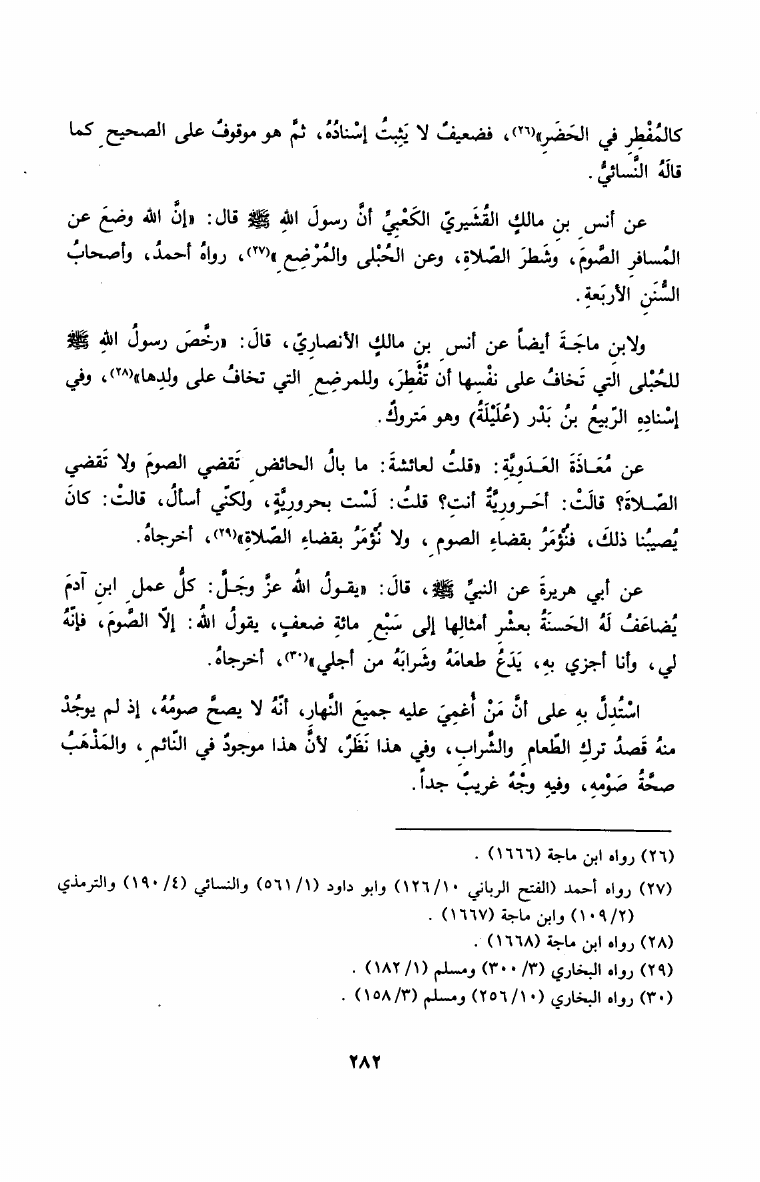 كالمُفْطِرِ في الحَضَرِ»(٢٦)، فضعيفٌ لا يَثبتُ إسْنادُهُ، ثمَّ هو موقوفٌ على الصحيحِ كما
قالَهُ النَّسائيُّ.
عن أنسِ بنِ مالكٍ القُشَيريّ الكَعْبيِّ أنَّ رسولَ اللهِ ﷺ قال: «إنَّ الله وضعَ عن
المُسافرِ الصَّومَ، وشَطرَ الصّلاةِ، وعن الحُبْلى والمُرْضِعِ»(٢٧)، رواهُ أحمدُ، وأصحابُ
السُّنَنِ الأربَعةِ.
ولابنِ ماجَةَ أيضاً عن أنسِ بنِ مالكٍ الأنصاريّ، قالَ: «رخَّصَ رسولُ اللهِ ﷺ
للحُبْلى التي تَخافُ على نفْسِها أن تُفْطِرَ، وللمرضِعِ التي تخافُ على ولدِها»(٢٨)، وفي
إسْنادِهِ الرّبيعُ بنُ بَدْر (عُلَيْلَةُ) وهو مَتروكٌ.
عن مُعَاذَةَ العَدَويَّةِ: «قلتُ لعائشةَ: ما بالُ الحائضِ تَقضي الصومَ ولا تَقضي
الصّلاةَ؟ قالَتْ: أحَروريَّةٌ أنتِ؟ قلتُ: لَسْت بحروريَّةٍ، ولكنّي أسألُ، قالتْ: كانَ
يُصيبُنا ذلكَ، فنُؤمَرُ بقضاءِ الصومِ، ولا نُؤمَرُ بقضاءِ الصّلاةِ»(٢٩)، أخرجاهُ.
عن أبي هريرةَ عن النبيِّ ﷺ، قالَ: «يقولُ اللهُ عزَّ وجَلَّ: كلُّ عملِ ابنِ آدمَ
يُضاعَفُ لَهُ الحَسنَةُ بعشْرِ أمثالِها إلى سَبْعِ مائةِ ضعفٍ، يقولُ اللهُ: إلّا الصَّومَ، فإنّهُ
لي، وأنا أجزي بهِ، يَدَعُ طعامَهُ وشَرابَهُ من أجلي»(٣٠)، أخرجاهُ.
اسْتُدِلَّ بهِ على أنَّ مَنْ أُغمِيَ عليه جميعَ النَّهارِ، أنّهُ لا يصحَّ صومُهُ، إذ لم يوجُدْ
منهُ قَصدُ تركِ الطّعامِ والشَّرابِ، وفي هذا نَظَرٌ، لأنَّ هذا موجودٌ في النّائمِ، والمَذْهَبُ
صحَّةُ صَوْمهِ، وفيهِ وجْهٌ غريبٌ جداً.
(٢٦) رواه ابن ماجة (١٦٦٦).
(٢٧) رواه أحمد (الفتح الرباني ١٢٦/١٠) وابو داود (٥٦١/١) والنسائي (١٩٠/٤) والترمذي
(١٠٩/٢) وابن ماجة (١٦٦٧).
(٢٨) رواه ابن ماجة (١٦٦٨).
(٢٩) رواه البخاري (٣٠٠/٣) ومسلم (١٨٢/١).
(٣٠) رواه البخاري (٢٥٦/١٠) ومسلم (١٥٨/٣).
٢٨٢